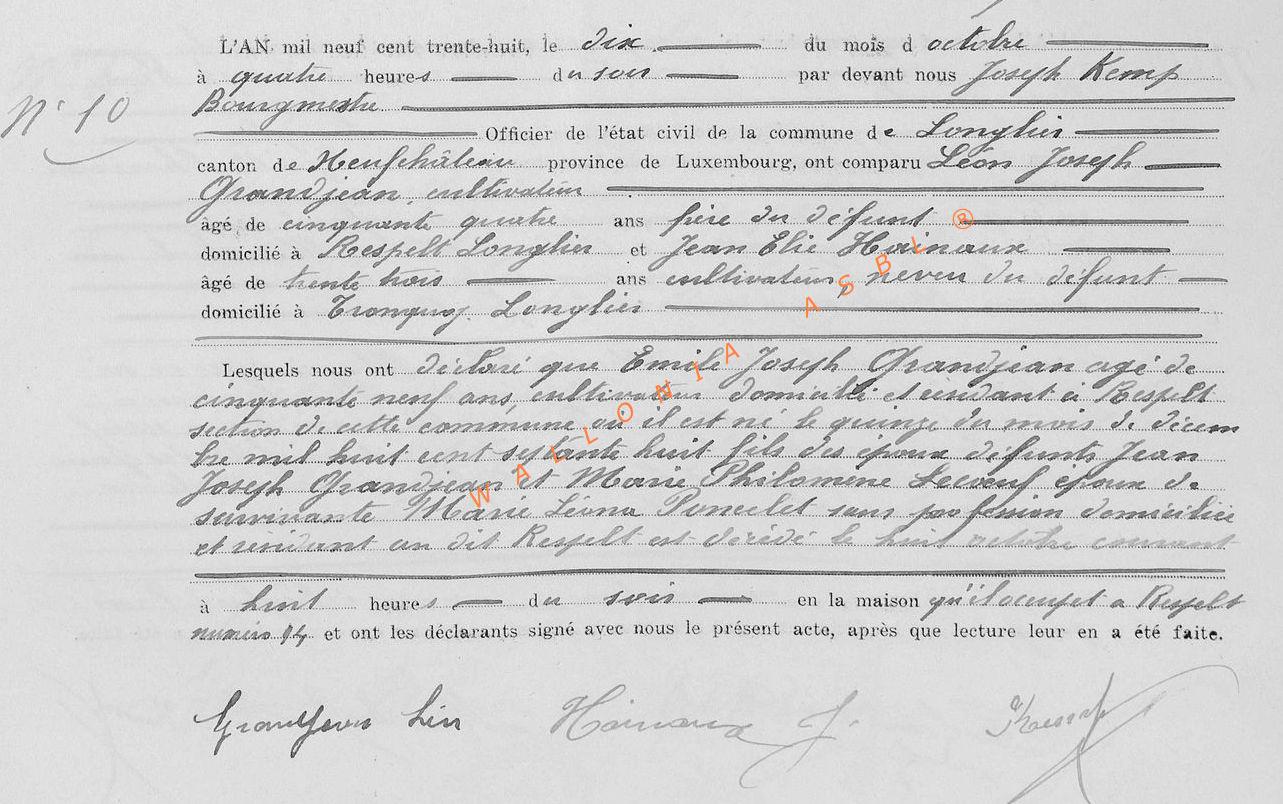 L'AN mil neuf cent trente-huit, le dix du mois d octobre
à quatre heures du soir par devant nous Joseph Kemp
N° 10
Bourgmestre
Officier de l'état civil de la commune de Longlier
canton de Neufchâteau province de Luxembourg, ont comparu Léon Joseph
Grandjean, cultivateur
âgé de cinquante quatre ans frère du défunt
domicilié à Respelt Longlier et Jean Elie Hainaux
âgé de trente trois ans cultivateur, neveu du défunt
domicilié à Tronquoy Longlier
Lesquels nous ont déclaré que Emile Joseph Grandjean agé de
cinquante neuf ans, cultivateur domicilié et résidant à Respelt
section de cette commune où il est né le quinze du mois de décem
bre mil huit cent septante huit fils des époux défunts Jean
Joseph Grandjean et Marie Philomene Lecoeuf époux de
survivante Marie Léona Poncelet sans profession domiciliée
et résidant au dit Respelt est décédé le huit octobre courant
à huit heures du soir en la maison qu'il occupet a Respelt
numéro 94 et ont les déclarants signé avec nous le présent acte, après que lecture leur en a été faite.
Grandjean Léon Hainaux J. JKemp
WALLONIA ASBL ®